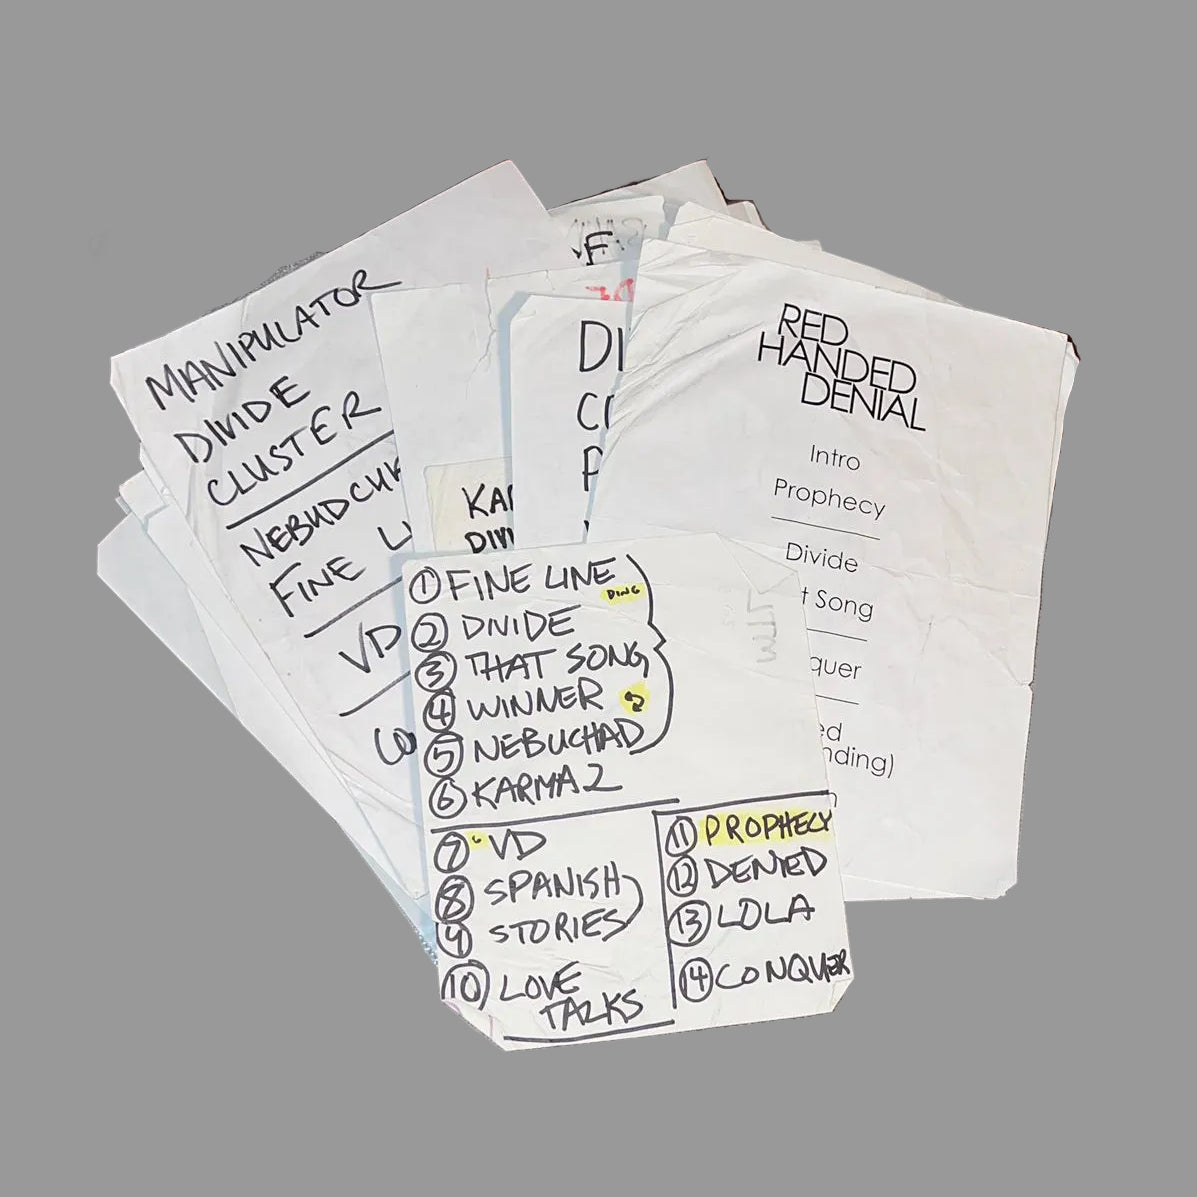 MANIPULATOR
DIVIDE
CLUSTER
FINE
VD
F
KAR
DIVI
DI
CO
P
RED
HANDED
DENIAL
Intro
Prophecy
Divide
t Song
quer
ed
nding)
① FINE LINE
DING
② DIVIDE
③ THAT SONG
④ WINNER
⑤ NEBUCHAD
⑥ KARMA 2
⑦ VD
⑧ SPANISH
⑨ STORIES
⑩ LOVE
TALKS
⑪ PROPHECY
⑫ DENIED
⑬ LOLA
⑭ CONQUER